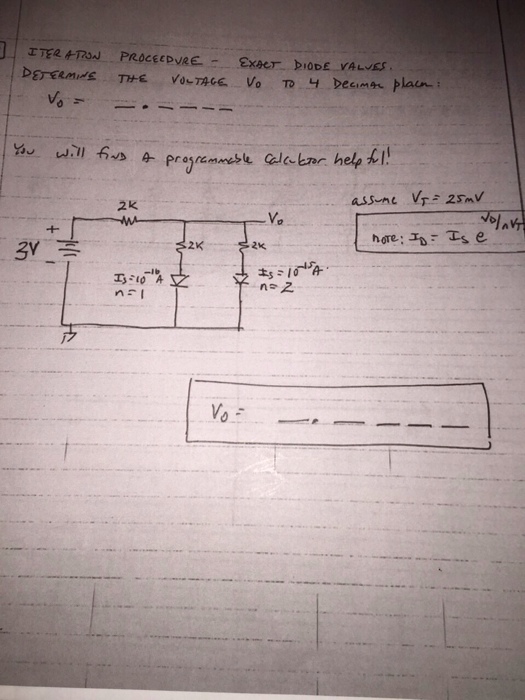 ITERATION PROCEEDURE - EXACT DIODE VALUES.
DETERMINE THE VOLTAGE Vo TO 4 DECIMAL places:
Vo = _ . _ _ _ _
You will find A programmable Calculator helpful!
assume VT = 25mV
note: ID = IS e^VD/nVT
2K
Vo
+
3V
-
2K
2K
IS = 10^-16 A
n = 1
IS = 10^-15 A.
n = 2
Vo = _ . _ _ _ _